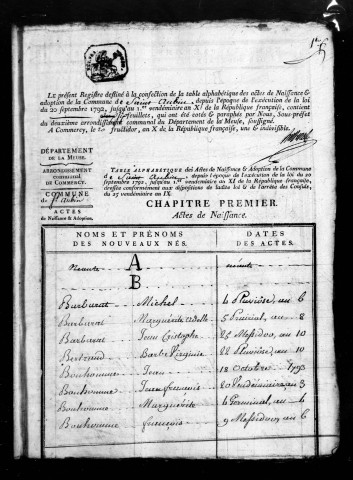 1er
LE présent Registre destiné à la confection de la table alphabétique des actes de Naissance &
adoption de la Commune de Saint Aubin, depuis l'époque de l'exécution de la loi
du 20 septembre 1792, jusqu'au 1.er vendémiaire an XI de la République française, contient
feuillets, qui ont été cotés & paraphés par Nous, Sous-préfet
du deuxième arrondissement communal du Département de la Meuse, soussigné.
A Commercy, le fructidor, an X de la République française, une & indivisible.
DÉPARTEMENT
DE LA MEUSE.
ARRONDISSEMENT
communal
DE COMMERCY.
COMMUNE
de St Aubin
ACTES
de Naissance & Adoption.
TABLE ALPHABÉTIQUE des Actes de Naissance & Adoption de la Commune
de Saint Aubin, depuis l'époque de l'exécution de la loi du 20
septembre 1792, jusqu'au 1.er vendémiaire an XI de la République française,
dressée conformément aux dispositions de ladite loi & de l'arrêté des Consuls,
du 25 vendémiaire an IX.
CHAPITRE PREMIER.
Actes de Naissance.
NOMS ET PRÉNOMS
DES NOUVEAUX NÉS.
DATES
DES ACTES.
A
néante néante
B
Barbarat Michel 4 Pluviose, an 6
Barbarat Marguérite 5 Prairial, an 8
Barbarat Jean 25 Messidor, an 10
Bertrand Barbe Virginie 22 Pluviose, an 10
Bonhomme Jean 18 Octobre 1793
Bonhomme Jean françois 20 Vendémiaire, an 3
Bonhomme Marguérite 4 Germinal, an 6
Bonhomme françois 9 Messidor, an 6